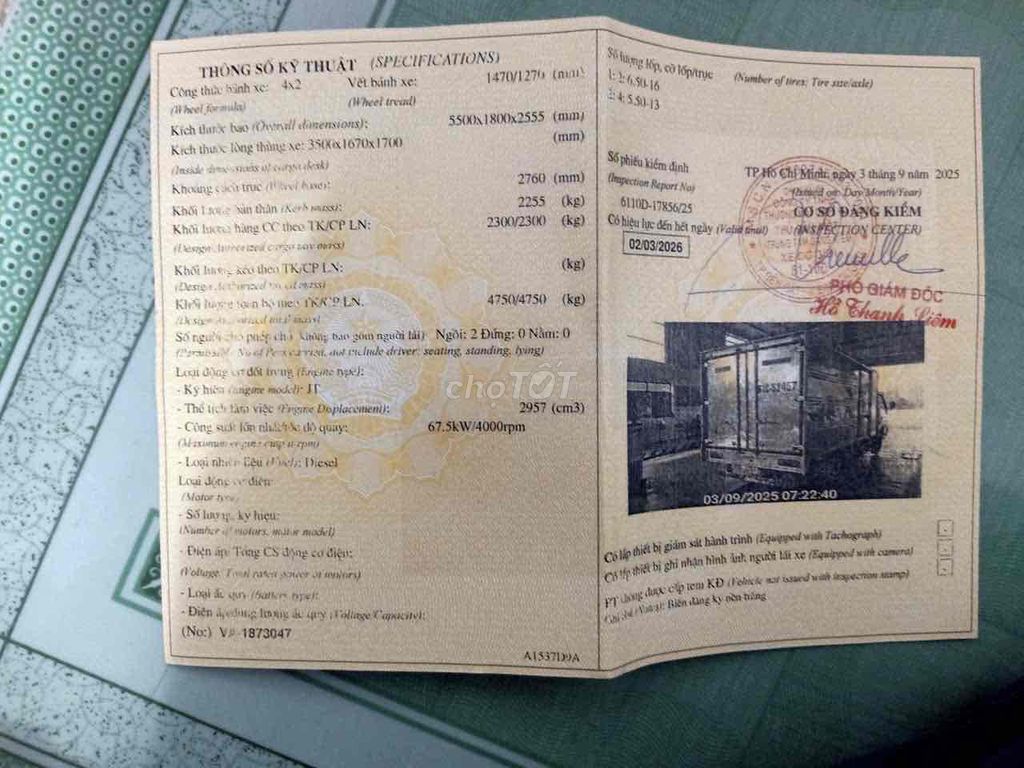 THÔNG SỐ KỸ THUẬT (SPECIFICATIONS)
Công thức bánh xe: 4x2 Vết bánh xe: 1470/1270 (mm)
(Wheel formula) (Wheel tread)
Kích thước bao (Overall dimensions): 5500x1800x2555 (mm)
Kích thước lòng thùng xe: 3500x1670x1700 (mm)
(Inside dimensions of cargo desk)
Khoảng cách trục (Wheel base): 2760 (mm)
Khối lượng bản thân (Kerb mass): 2255 (kg)
Khối lượng hàng CC theo TK/CP LN: 2300/2300 (kg)
(Design/Authorized cargo mass)
Khối lượng kéo theo TK/CP LN: (kg)
(Design/Authorized towed mass)
Khối lượng toàn bộ theo TK/CP LN: 4750/4750 (kg)
(Design/Authorized total mass)
Số người cho phép chở không bao gồm người lái) Ngồi: 2 Đứng: 0 Nằm: 0
(Permissible No of Pers carried, not include driver: seating, standing, lying)
Loại động cơ đốt trong (Engine type):
- Ký hiệu (Engine model): JT
- Thể tích làm việc (Engine Displacement): 2957 (cm3)
- Công suất lớn nhất/tốc độ quay: 67.5kW/4000rpm
(Maximum engine output/rpm)
- Loại nhiên liệu (Fuel): Diesel
Loại động cơ điện:
(Motor type)
- Số lượng, ký hiệu:
(Number of motors, motor model)
- Điện áp/ Tổng CS động cơ điện:
(Voltage/ Total rated power of motors)
- Loại ắc quy (Battery type):
- Điện áp/dung lượng ắc quy (Voltage/Capacity):
(No:) 1873047
A1537D9A
Số lượng lốp, cỡ lốp/trục (Number of tires: Tire size/axle)
1: 2; 6.50-16
2: 4; 5.50-13
Số phiếu kiểm định
(Inspection Report No)
6110D-17856/25
Có hiệu lực đến hết ngày (Valid until)
02/03/2026
TP Hồ Chí Minh, ngày 3 tháng 9 năm 2025
(Issued on: Day/Month/Year)
CƠ SỞ ĐĂNG KIỂM
(INSPECTION CENTER)
PHÓ GIÁM ĐỐC
Hồ Thanh Liêm
03/09/2025 07:22:40
Có lắp thiết bị giám sát hành trình (Equipped with Tachograph)
Có lắp thiết bị ghi nhận hình ảnh người lái xe (Equipped with camera)
PT không được cấp tem KĐ (Vehicle not issued with inspection stamp)
Ghi chú (Notes): Biển đăng ký nền trắng
choTỐT